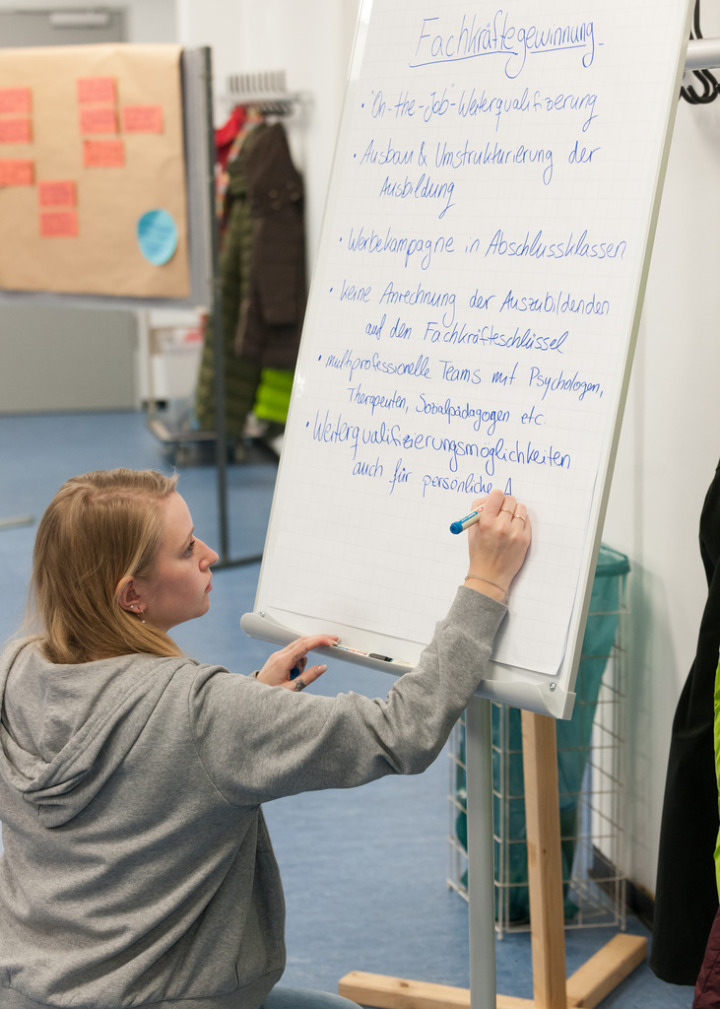 Fachkräftegewinnung
• "On-the-Job"-Weiterqualifizierung
• Ausbau & Umstrukturierung der
Ausbildung
• Werbekampagne in Abschlussklassen
• keine Anrechnung der Auszubildenden
auf den Fachkräfteschlüssel
• multiprofessionelle Teams mit Psychologen,
Therapeuten, Sozialpädagogen etc.
• Weiterqualifizierungsmöglichkeiten
auch für persönliche A